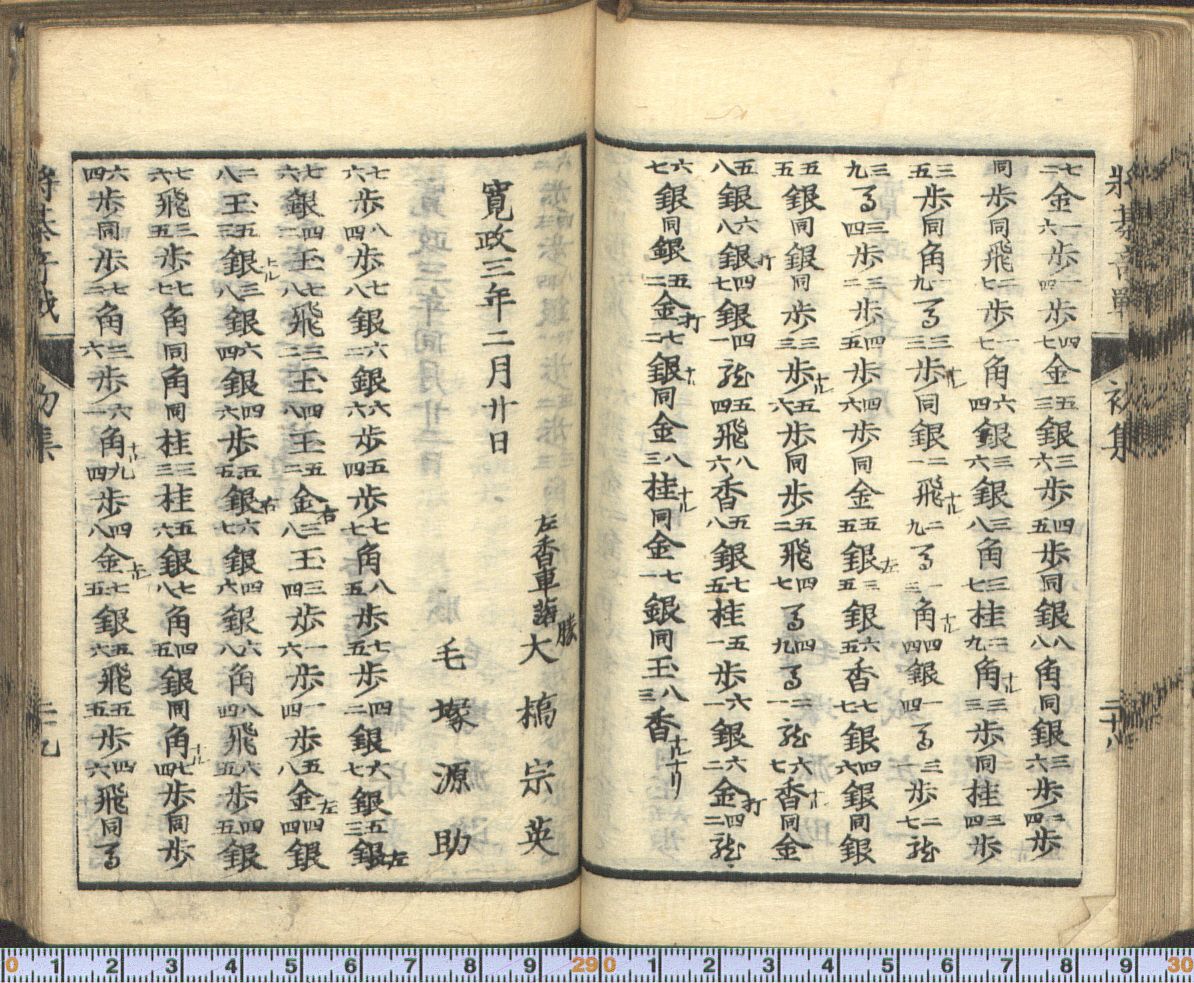 七二金一六歩一四歩四七金五三銀三六歩四五歩同銀八八角同銀三六歩二四歩
同歩同飛二七歩一七角六四銀三六銀三八角三七桂三九角ナル三三歩同桂三四歩
三五歩同角一九馬三三歩ナル同銀二一飛ナル二九馬一三角ナル四四銀一四馬三一歩二七龍
三九馬三四歩三二歩四五歩四六歩同金五五銀左三五銀六五香七七銀四六銀同銀
五五銀同銀同歩三三歩ナル五六歩同歩五二飛四七馬四九馬三一龍六七香ナル同金
五八銀六八銀打四七銀四一龍五四飛八六香五八銀七五桂五一歩六一銀六二金打四二龍
六七銀同銀五二金打七二銀ナル同金八三桂ナル同金七一銀同玉八三香ナル
初集
二十八
寛政三年二月廿日
左香車落 勝 大橋宗英
毛塚源助
七六歩八四歩七八銀六二銀六六歩五四歩七七角八五歩七五歩四二銀六七銀五三銀左
七六銀四二玉七八飛三二玉四八玉五二金右三八玉三四歩一六歩一四歩五八金左四四銀
二八玉五三銀上ル三八銀六四銀四六歩五五銀右六七銀四六銀六八角八四飛六五歩四五銀
七六飛三五歩七七角同角同桂三三桂五六銀七八角四五銀同角ナル七四歩同歩
六四歩同歩七二角三六歩六一角ナル九四歩四八金左七五銀五六飛五五歩四六飛同馬
初集
二十九
0 1 2 3 4 5 6 7 8 9 290 1 2 3 4 5 6 7 8 9 30